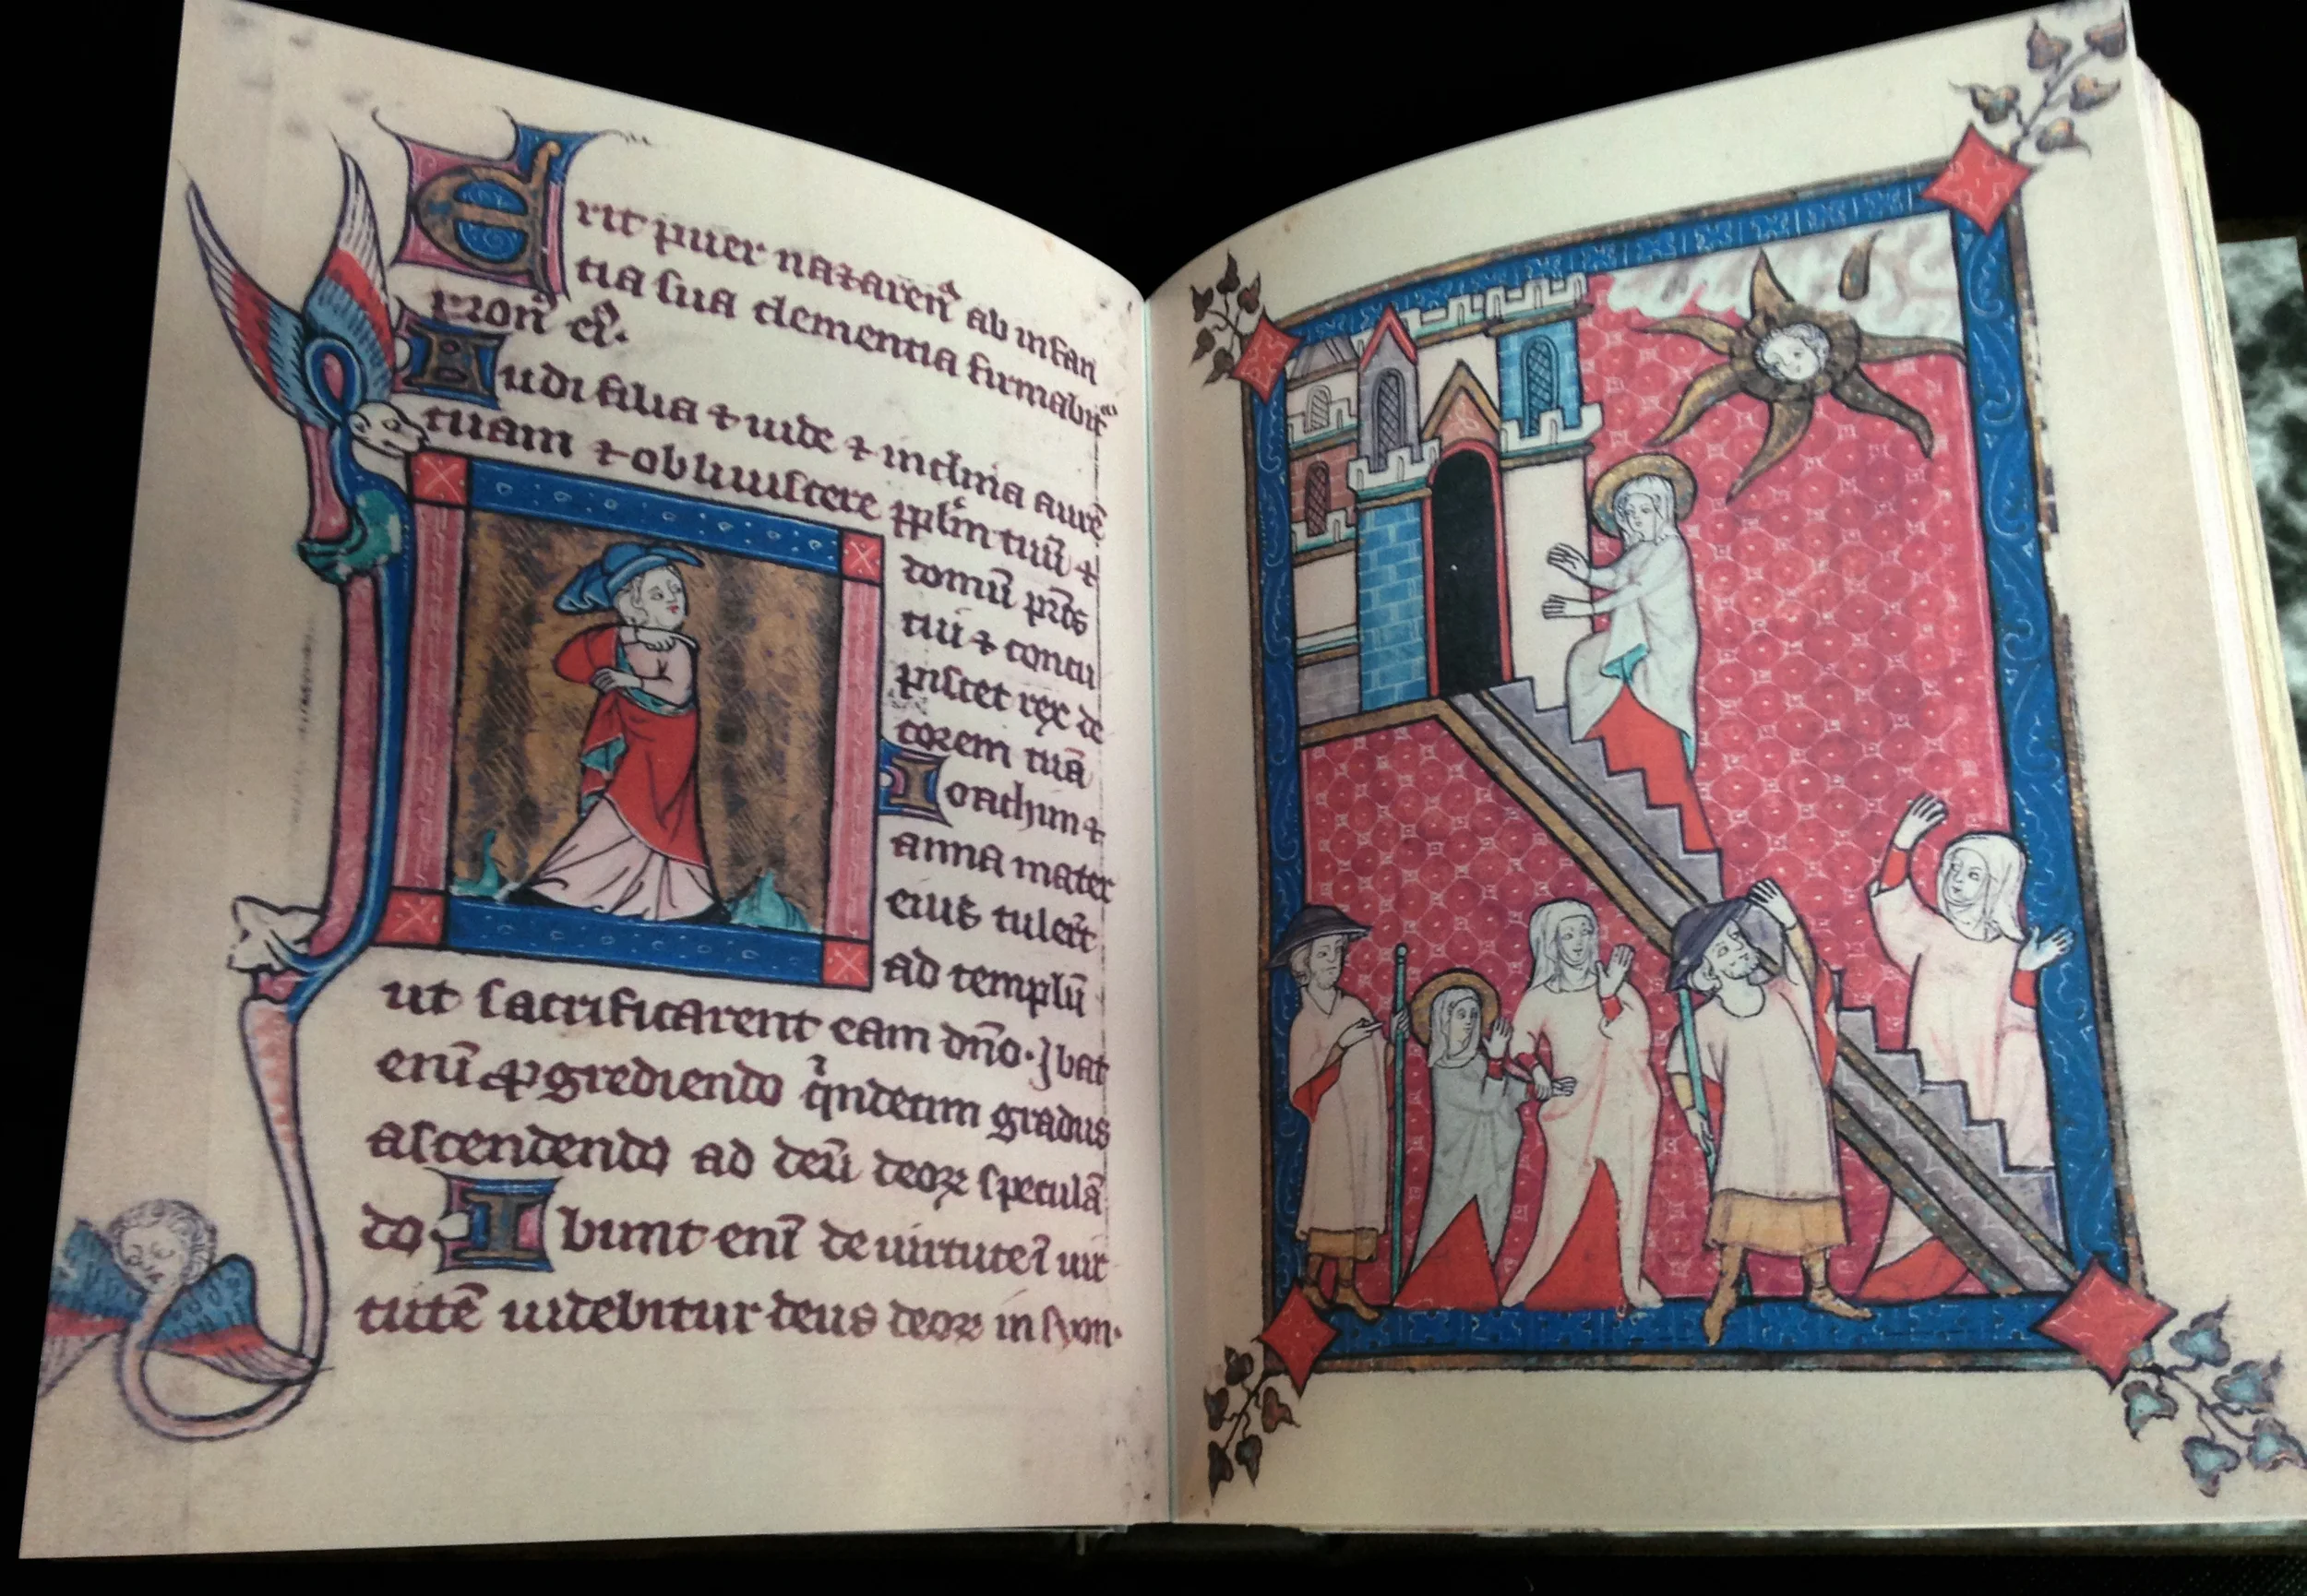 Erit puer nazaren9 ab infan
tia sua clementia firmabit
tron9 ei9.
Audi filia ⁊ uide ⁊ inclina aurē
tuam ⁊ obliuiscere pplm tuū ⁊
domū pr̄is
tui ⁊ concu
piscet rex de
corem tuū
Ioachim ⁊
anna mater
eius tuler̄t
ad templū
ut sacrificarent eam dn̄o. Ibat
enī ꝓgrediendo qindecim gradus
ascendendo ad deū deoꝝ speculā
do. Ibunt enī de uirtute ī uir
tutē uidebitur deus deoꝝ in syon.